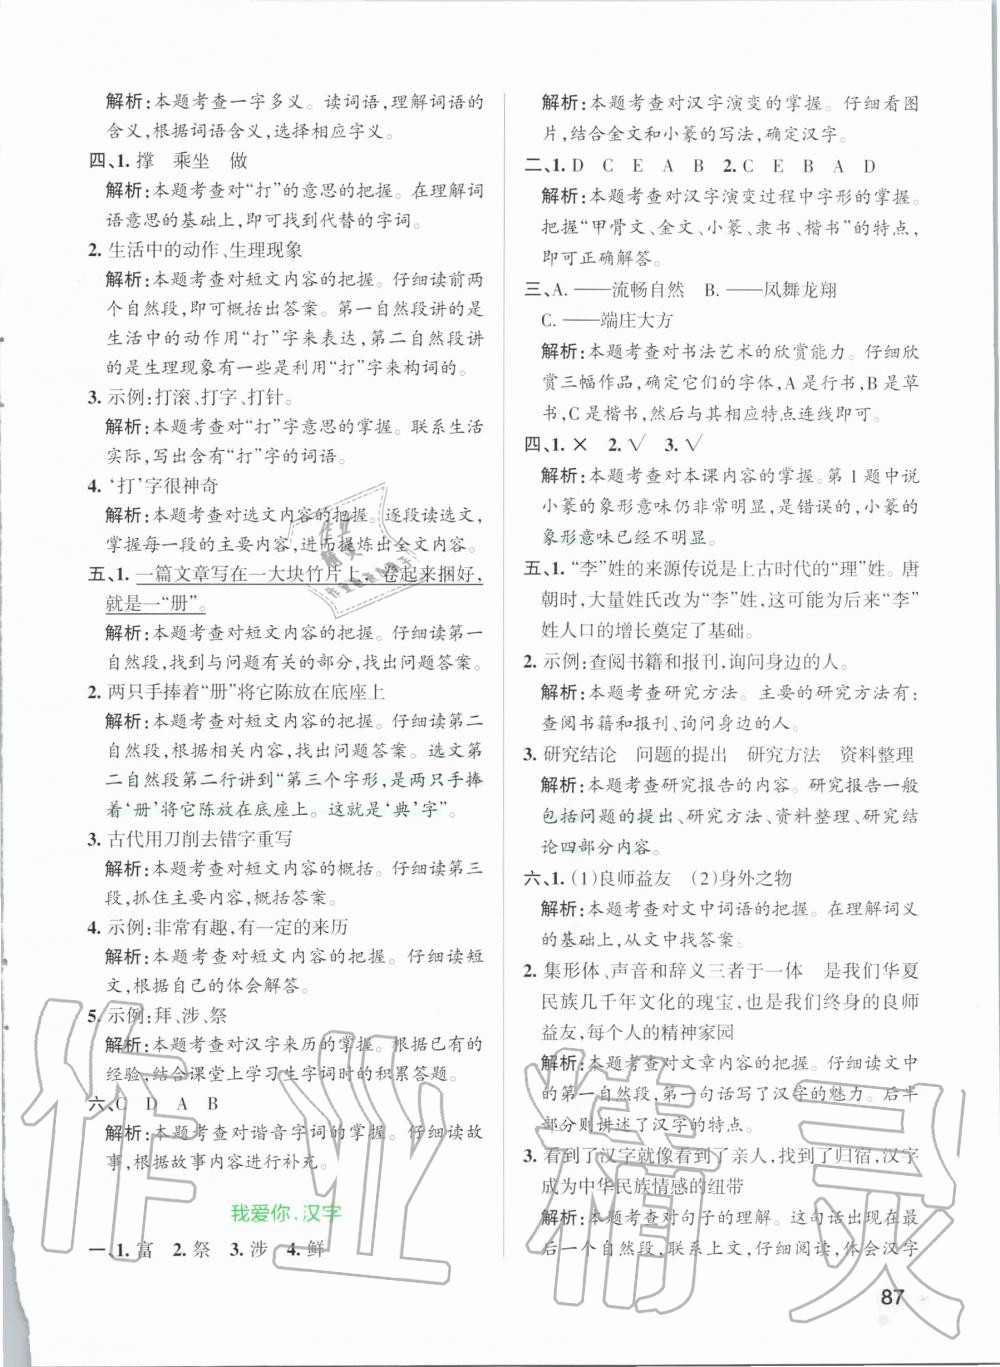 解析:本题考查一字多义。读词语,理解词语的
含义,根据词语含义,选择相应字义。
四、1. 撑 乘坐 做
解析:本题考查对“打”的意思的把握。在理解词
语意思的基础上,即可找到代替的字词。
2. 生活中的动作、生理现象
解析:本题考查对短文内容的把握。仔细读前两
个自然段,即可概括出答案。第一自然段讲的是
生活中的动作用“打”字来表达,第二自然段讲
的是生理现象有一些是利用“打”字来构词的。
3. 示例:打滚、打字、打针。
解析:本题考查对“打”字意思的掌握。联系生活
实际,写出含有“打”字的词语。
4. ‘打’字很神奇
解析:本题考查对选文内容的把握。逐段读选文,
掌握每一段的主要内容,进而提炼出全文内容。
五、1. 一篇文章写在一大块竹片上,卷起来捆好,
就是一“册”。
解析:本题考查对短文内容的把握。仔细读第一
自然段,找到与问题有关的部分,找出问题答案。
2. 两只手捧着“册”将它陈放在底座上
解析:本题考查对短文内容的把握。仔细读第二
自然段,根据相关内容,找出问题答案。选文第
二自然段第二行讲到“第三个字形,是两只手捧
着‘册’将它陈放在底座上。这就是‘典’字”。
3. 古代用刀削去错字重写
解析:本题考查对短文内容的概括。仔细读第三
段,抓住主要内容,概括答案。
4. 示例:非常有趣,有一定的来历
解析:本题考查对短文内容的把握。仔细读短文,
根据自己的体会解答。
5. 示例:拜、涉、祭
解析:本题考查对汉字来历的掌握。根据已有的
经验,结合课堂上学习生字词时的积累答题。
六、C D A B
解析:本题考查对谐音字词的掌握。仔细读故
事,根据故事内容进行补充。
我爱你,汉字
一、1. 富 2. 祭 3. 涉 4. 鲜
解析:本题考查对汉字演变的掌握。仔细看图
片,结合金文和小篆的写法,确定汉字。
二、1. D C E A B 2. C E B A D
解析:本题考查对汉字演变过程中字形的掌握。
把握“甲骨文、金文、小篆、隶书、楷书”的特点,
即可正确解答。
三、A. ——流畅自然 B. ——凤舞龙翔
C. ——端庄大方
解析:本题考查对书法艺术的欣赏能力。仔细欣
赏三幅作品,确定它们的字体,A 是行书,B 是草
书,C 是楷书,然后与其相应特点连线即可。
四、1. × 2. √ 3. √
解析:本题考查对本课内容的掌握。第 1 题中说
小篆的象形意味仍非常明显,是错误的,小篆的
象形意味已经不明显。
五、1. “李”姓的来源传说是上古时代的“理”姓。唐
朝时,大量姓氏改为“李”姓,这可能为后来“李”
姓人口的增长奠定了基础。
2. 示例:查阅书籍和报刊,询问身边的人。
解析:本题考查研究方法。主要的研究方法有:
查阅书籍和报刊、询问身边的人。
3. 研究结论 问题的提出 研究方法 资料整理
解析:本题考查研究报告的内容。研究报告一般
包括问题的提出、研究方法、资料整理、研究结
论四部分内容。
六、1. (1)良师益友 (2)身外之物
解析:本题考查对文中词语的把握。在理解词义
的基础上,从文中找答案。
2. 集形体、声音和辞义三者于一体 是我们华夏
民族几千年文化的瑰宝,也是我们终身的良师
益友,每个人的精神家园
解析:本题考查对文章内容的把握。仔细读文中
的第一自然段,第一句话写了汉字的魅力。后半
部分则讲述了汉字的特点。
3. 看到了汉字就像看到了亲人,找到了归宿,汉字
成为中华民族情感的纽带
解析:本题考查对句子的理解。这句话就在最后
一个自然段,联系上文,仔细阅读,体会汉字
87
作业精灵